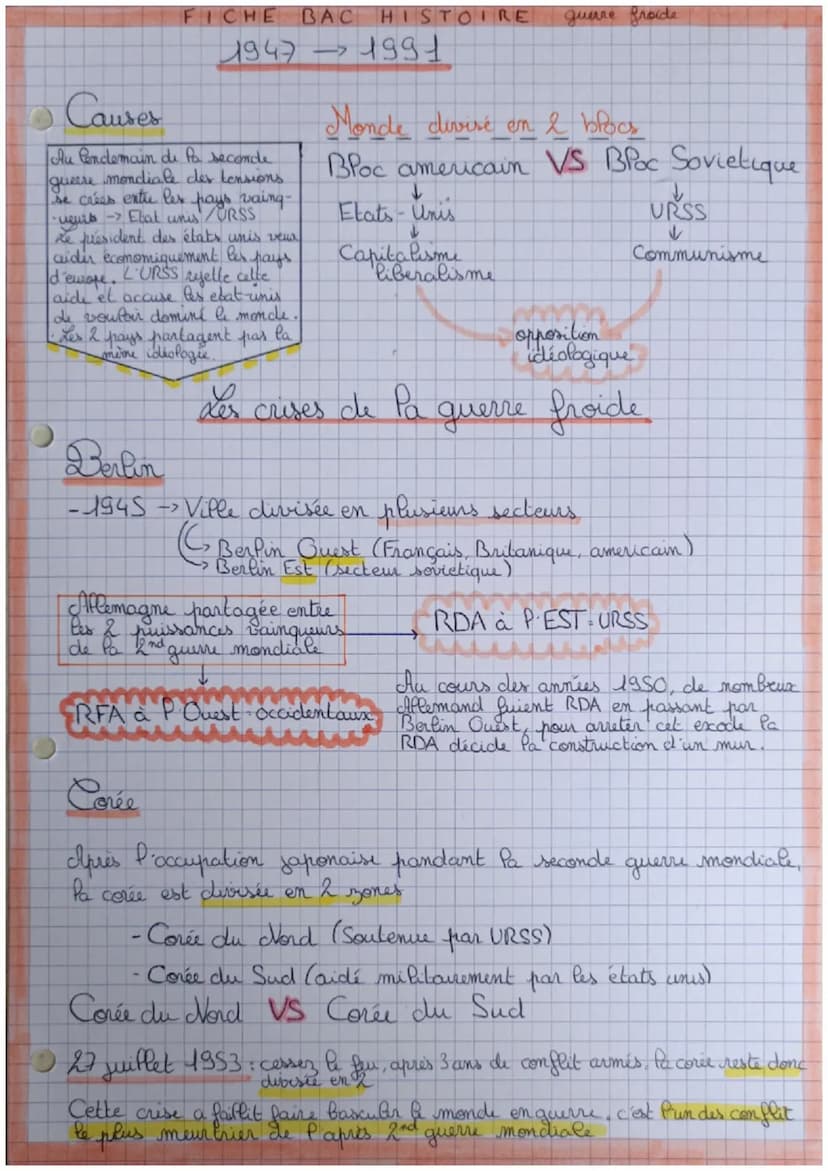 FICHE BAC HISTOIRE guerre froide
1947 → 1991
Causes
Au lendemain de la seconde
guerre mondiale des tensions
se crées entre les pays vainq-
-ueurs → Etat unis / URSS
Le président des états unis veux
aider économiquement les pays
d'europe. L'URSS rejette cette
aide et accuse les etat-unis
de vouloir dominé le monde.
. Les 2 pays partagent pas la
même idéologie.
Monde divisé en 2 blocs
Bloc americain VS Bloc Sovietique
↓ ↓
Etats-Unis URSS
↓ ↓
Capitalisme Communisme
liberalisme
opposition
idéologique
Les crises de la guerre froide
Berlin
- 1945 → Ville divisée en plusieurs secteurs
→ Berlin Ouest (Français, Britanique, americain)
→ Berlin Est (secteur soviétique)
Allemagne partagée entre
les 2 puissances vainqueurs
de la 2nd guerre mondiale
RDA à l'EST = URSS
RFA à l'Ouest = occidentaux
Au cours des années 1950, de nombreux
Allemand fuient RDA en passant par
Berlin Ouest, pour arreter cet exode la
RDA décide la construction d'un mur.
Corée
Après l'occupation japonaise pandant la seconde guerre mondiale,
la corée est divisée en 2 zones
- Corée du Nord (Soutenue par URSS)
- Corée du Sud (aidé militairement par les états unis)
Corée du Nord VS Corée du Sud
27 juillet 1953 : cessez le feu, après 3 ans de conflit armés, la corée reste donc
divisée en 2
Cette crise a faillit faire basculer le monde en guerre, c'est l'un des conflit
le plus meurtrier de l'après 2nd guerre mondiale